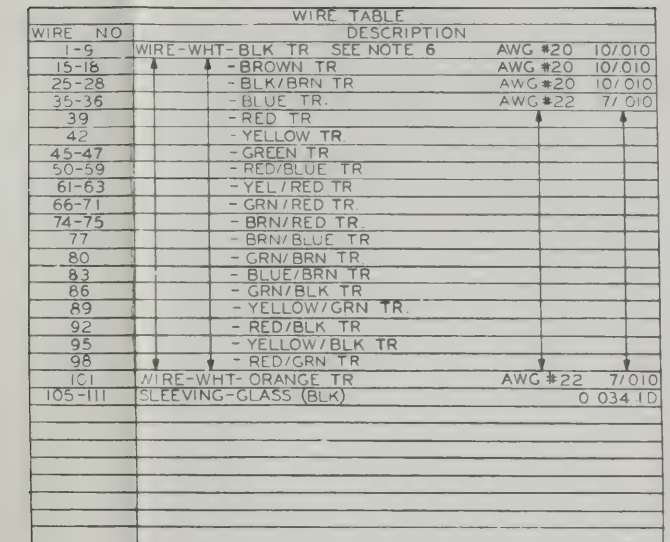 WIRE TABLE
WIRE NO DESCRIPTION
1-9 WIRE-WHT-BLK TR SEE NOTE 6 AWG #20 10/.010
15-18 -BROWN TR AWG #20 10/.010
25-28 -BLK/BRN TR AWG #20 10/010
35-36 -BLUE TR. AWG #22 7/010
39 -RED TR
42 -YELLOW TR.
45-47 -GREEN TR
50-59 -RED/BLUE TR
61-63 -YEL/RED TR
66-71 -GRN/RED TR.
74-75 -BRN/RED TR.
77 -BRN/BLUE TR
80 -GRN/BRN TR
83 -BLUE/BRN TR
86 -GRN/BLK TR
89 -YELLOW/GRN TR.
92 -RED/BLK TR
95 -YELLOW/BLK TR
98 -RED/GRN TR
101 WIRE-WHT-ORANGE TR AWG #22 7/010
105-111 SLEEVING-GLASS (BLK) 0 034 ID